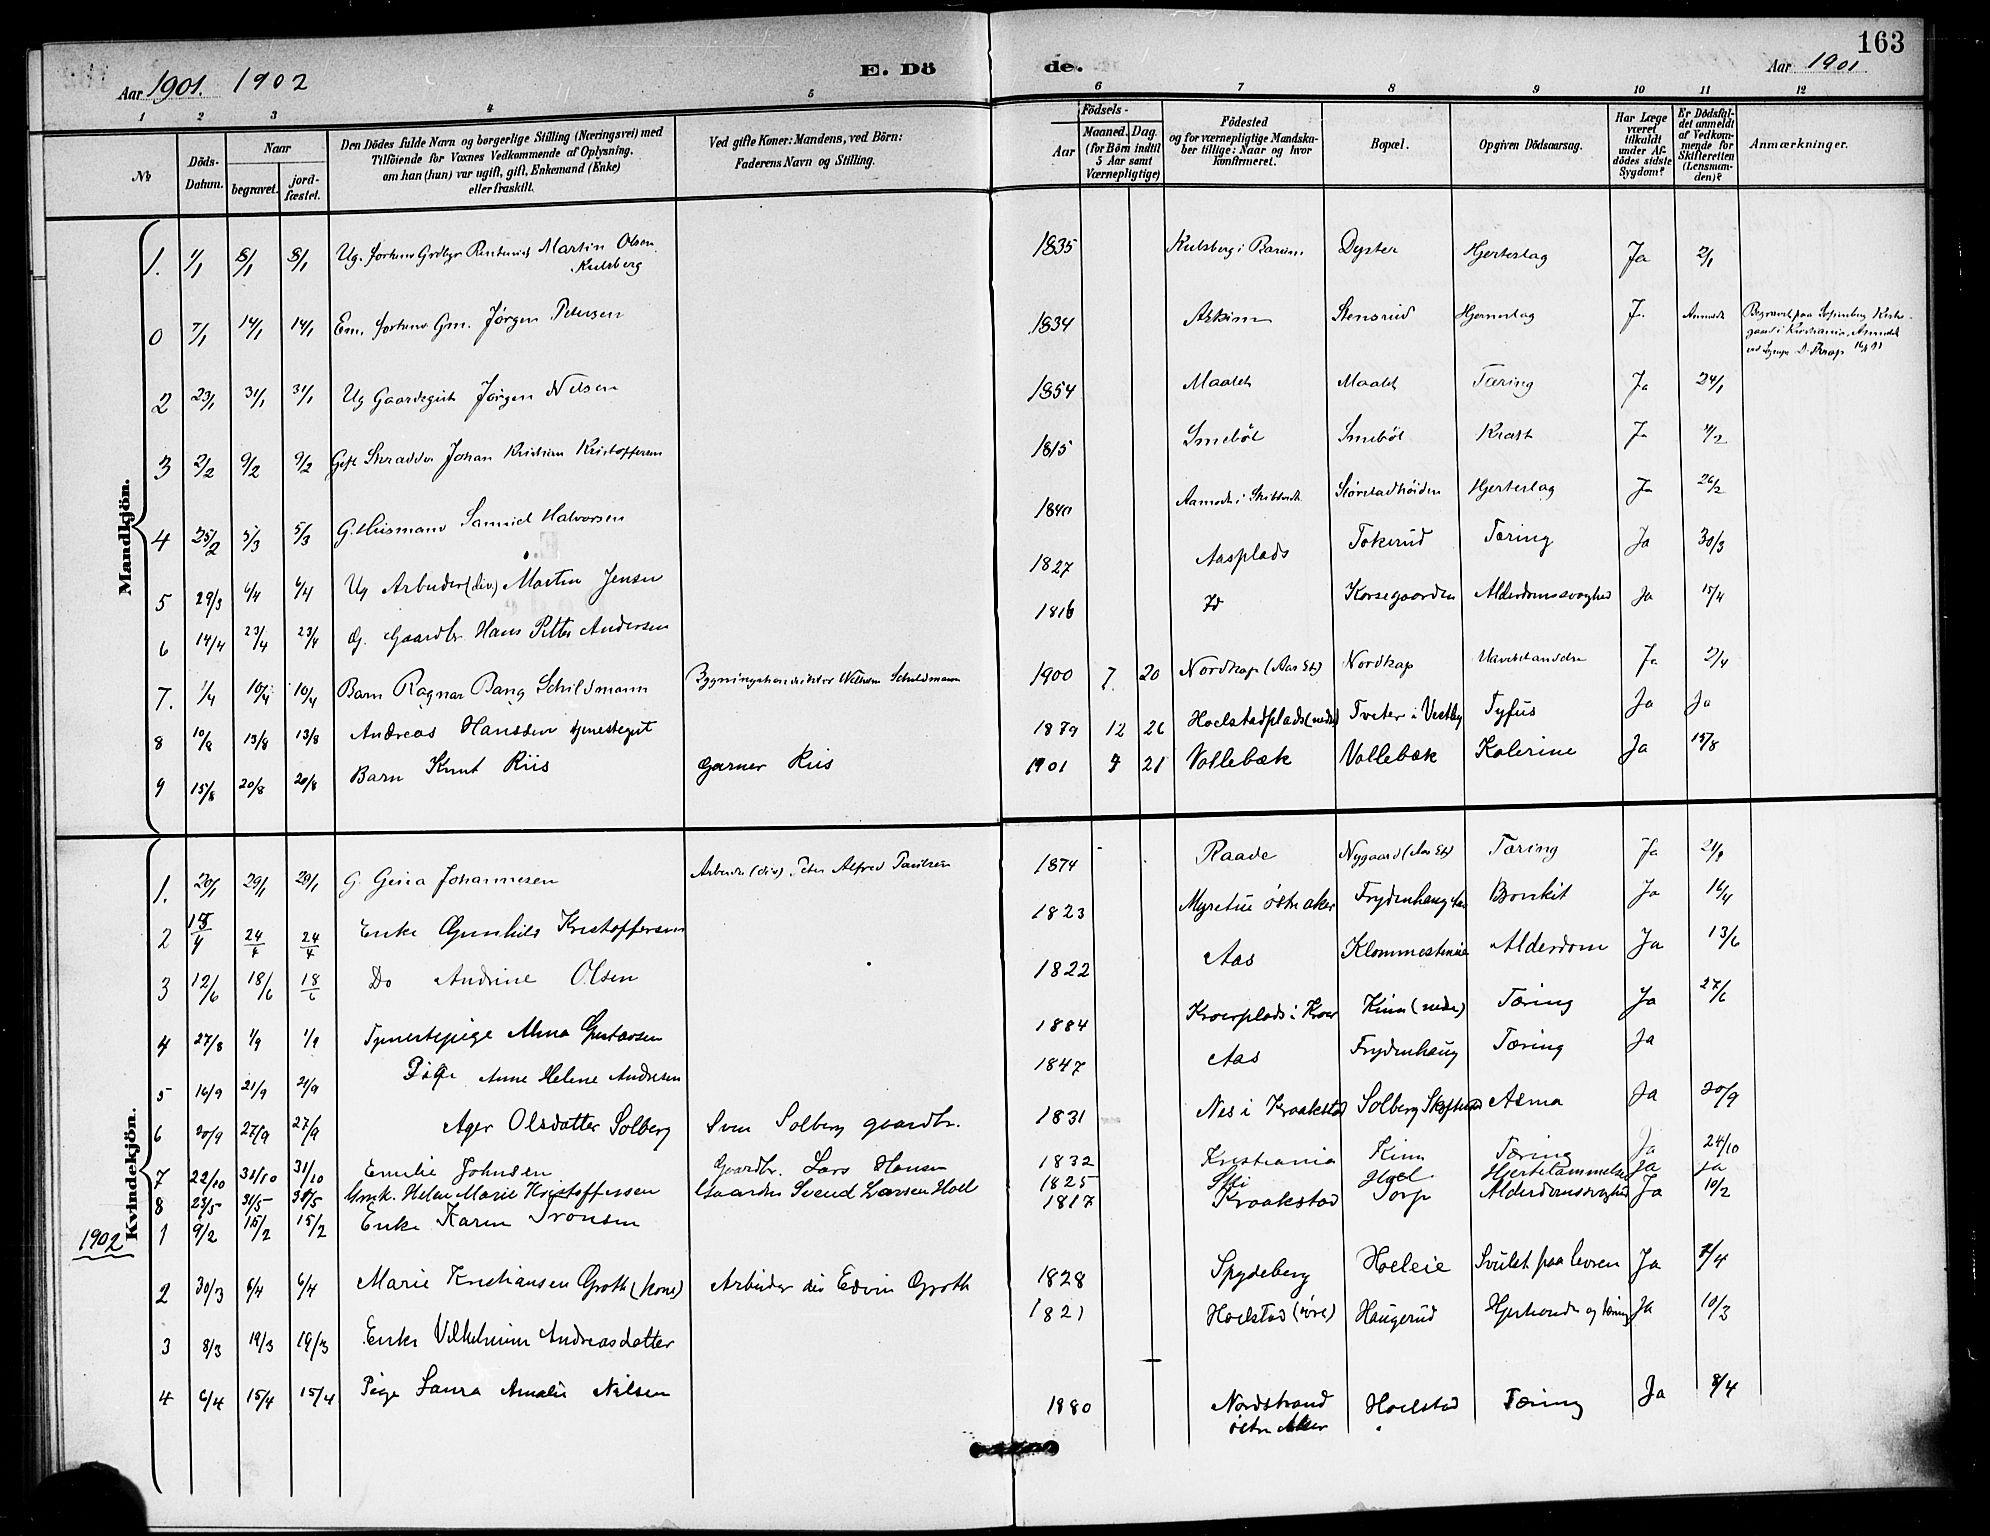 163
Aar 1901. 1902
E. Dö
de.
Aar 1901
1 2 3 4 5 6 7 8 9 10 11 12
№ Döds-Datum. Naar begravet. jordfæstet. Den Dödes fulde Navn og borgerlige Stilling (Næringsvei) med Tilföiende for Voxnes Vedkommende af Oplysning, om han (hun) var ugift, gift, Enkemand (Enke) eller fraskilt. Ved gifte Koner: Mandens, ved Börn: Faderens Navn og Stilling. Födsels- Aar Maaned. Dag. (for Börn indtil 5 Aar samt Værnepligtige) Födested og for værnepligtige Mandskaber tillige: Naar og hvor konfirmeret. Bopæl. Opgiven Dödsaarsag. Har Læge været tilkaldt under Afdödes sidste Sygdom? Er Dödsfaldet anmeldt af Vedkommende for Skifteretten (Lensmanden)? Anmærkninger.
Mandkjön.
1. 1/1 8/1 8/1 Ug. Martin Olsen Kulsberg 1835 Kulsberg i Bærum Dyster Hjerteslag Ja 2/1
0 7/1 14/1 14/1 Em. Gm. Jörgen Petersen 1834 Askim Stensrud Hjerneslag J. Anmeldt
2 23/1 31/1 31/1 Ug Jörgen Nilsen 1854 Tæring Ja 24/1
3 2/2 9/2 9/2 Gift Skrædder Johan Kristian Kristoffersen 1815 Smeböl Smeböl Kræft Ja 4/2
4 25/2 5/3 5/3 G. Husmand Samuel Halvorsen 1840 Hjerteslag Ja 26/2
5 29/3 6/4 6/4 Ug Arbeider (div) Martin Jensen 1827 Aasplads Tokerud Tæring Ja 30/3
6 14/4 23/4 23/4 G. Gaardbr. Hans Petter Andersen 1816 Korsegaarden Alderdomssvaghed Ja 15/4
7. 1/4 10/4 10/4 Barn Ragnar Bang Schildmann Schildmann 1900 7. 20 Nordkap (Aas St) Nordkap Ja 2/4
8 10/8 13/8 13/8 Andreas Hanssen tjenestegut 1879 12 26 Hoelstadplads (nedre) Tveter i Vestby Tyfus Ja Ja
9 15/8 20/8 20/8 Barn Knut Riis Garner Riis 1901 7 21 Vollebæk Vollebæk Kolerine Ja 15/8
Kvindekjön.
1. 20/1 29/1 29/1 G. Gina Johannesen Arbeider (div) Peter Alfred Paulsen 1874 Raade Nygaard (Aas St) Tæring Ja
2 15/4 24/4 24/4 Enke Gunhild Kristoffersen 1823 östre aker Frydenhaug Bronkit Ja 16/4
3 12/6 18/6 18/6 Do Andrine Olsen 1822 Aas Klommestenene Alderdom Ja 13/6
4 27/8 1/9 1/9 Tjenestepige Alma Gustavsen 1884 Kroerplads i Kroer Kinn (nedre) Tæring Ja 27/6
5 16/9 21/9 21/9 Pige Anne Helene Andresen 1847 Aas Frydenhaug Tæring Ja
6 20/9 27/9 27/9 Ager Olsdatter Solberg Sven Solberg gaardbr. 1831 Nes i Kraakstad Solberg Asma Ja 20/9
7 22/10 31/10 31/10 Emilie Johnsen Gaardbr. Lars Hansen 1832 Kristiania Kinn Tæring Ja 24/10
8 23/5 31/5 31/5 Helene Marie Kristoffersen Gaardbr Svend Larsen Holl 1825 Ski Hoel Hjertelammelse Ja Ja
1902
1 9/2 15/2 15/2 Enke Karen Tronsen 1817 Kraakstad Torp Alderdomssvaghed Ja 10/2
2 30/3 6/4 6/4 Marie Kristiansen Groth (kone) Arbeider div Edvin Groth 1828 Spydeberg Holeie Svulst paa leveren Ja 2/4
3 8/3 19/3 19/3 Enke Vilhelmine Andreasdatter 1821 Hoelstad (övre) Haugerud og Tæring Ja 10/3
4 6/4 15/4 15/4 Pige Laura Amalie Nilsen 1880 Nordstrand östre Aker Hoelstad Tæring Ja 8/4